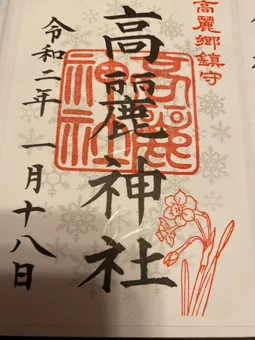 高麗郷鎮守
高麗神社
令和二年 一月十八日